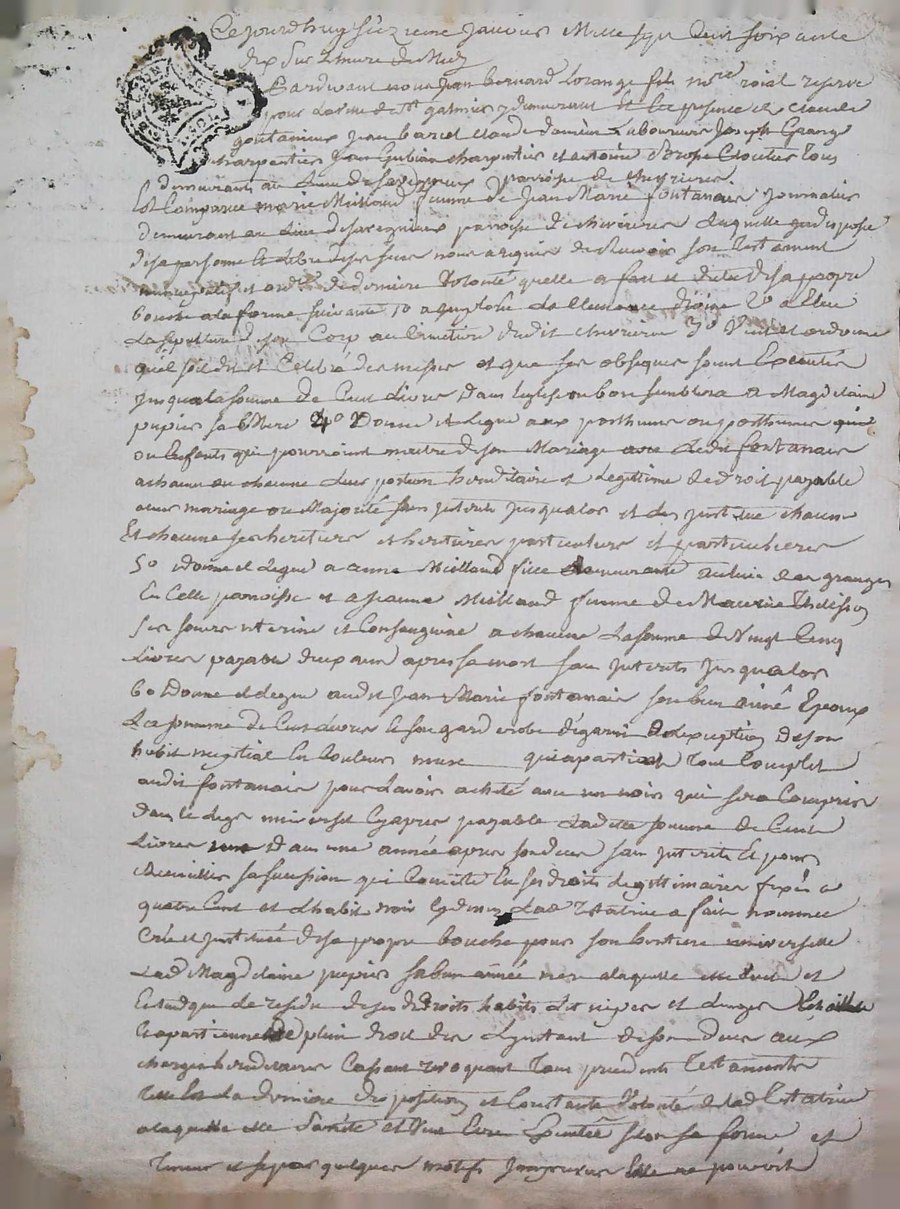 Ce jourd'huy seizieme janvier Mille sept Cent soixante
dix sur l'heure de Midy
Pardevant nous Jean bernard Lorange fils no.re roial reservé
pour la ville de St galmier y demeurant et En presence de claude
goutanieux Jean barcel claude damien Laboureurs Joseph Grange
charpentier Jean Gubian charpentier et antoine Cloutier Tous
demeurants au Lieu de parroisse de chevrieres
Est Comparue marie Millaud femme de Jean Marie fontanaie journalier
demeurant au Lieu de parroisse de chevrieres Laquelle indisposée
de sa personne Et libre de ses sens nous a requis de Recevoir son Testament
et ord.ce de derniere Volonté quelle a fait et dicté de sa propre
bouche a la forme suivante 1o a La Clemence divine 2o a Elue
La sepulture de son Corp au Cimetiere dudit chevriere 3o Veut et ordonne
quil soit dit et Celebré des messes et que ses obseques soint Executés
jusqua la somme de Cent Livres Dans Leglise ou bon semblera a Magdelaine
pupier sa Mere 4o Donne et Legue aux posthume ou posthumes
ou Enfents qui pourroint naitre de son Mariage avec Ledit fontanaie
a chacun ou chacune Leur portion hereditaire et Legitime de droit payable
a leur mariage ou Majorité sans jnterets jusqualors et Les jnstitue chacun
Et chacune ses heritiers et heritieres particuliers et particulieres
5o Donne et Legue a anne Millaud fille demeurante au lieu des granges
En Celle parroisse et a jeanne Millaud femme de Maurice
ses soeurs uterine et Consanguine a chacune La somme de Vingt Cinq
Livres payable deux ans apres sa mort sans jnterets jusqualors
6o Donne et Legue audit Jean Marie fontanaie son bien aimé Epoux
La somme de Cent Livres Le son garderobe dégarni a Lexception De son
habit nuptial En Couleur qui apartient Tout Complet
audit fontanaie pour Lavoir acheté avec un noir qui sera Compris
Dans le Legs universel Cyapres payable Ladite somme de Cent
Livres Dans une année apres son deces sans jnterets Et pour
Recueillir sa sucession qui Consiste En ses droits Legitimaires fixés a
quatre Cent et Lhabit noir Lad. Testatrice a fait nommée
Crée et jnstituée de sa propre bouche pour son heritiere universelle
Lad. Magdelaine pupier sa bien aimée mere a laquelle elle veut et
Entend que Le residu de ses d. droits habits Linges et
apartienne de plein droit des Linstant de son deces aux
charges hereditaires Cassant revoquant Tous precedents Testaments
Telle Est La derniere disposition et Constante Volonté de Lad. Testatrice
a laquelle elle sarrete et Veut Etre Executée selon sa forme et
Teneur et si par quelques motifs jmprevus Elle ne pouvoit